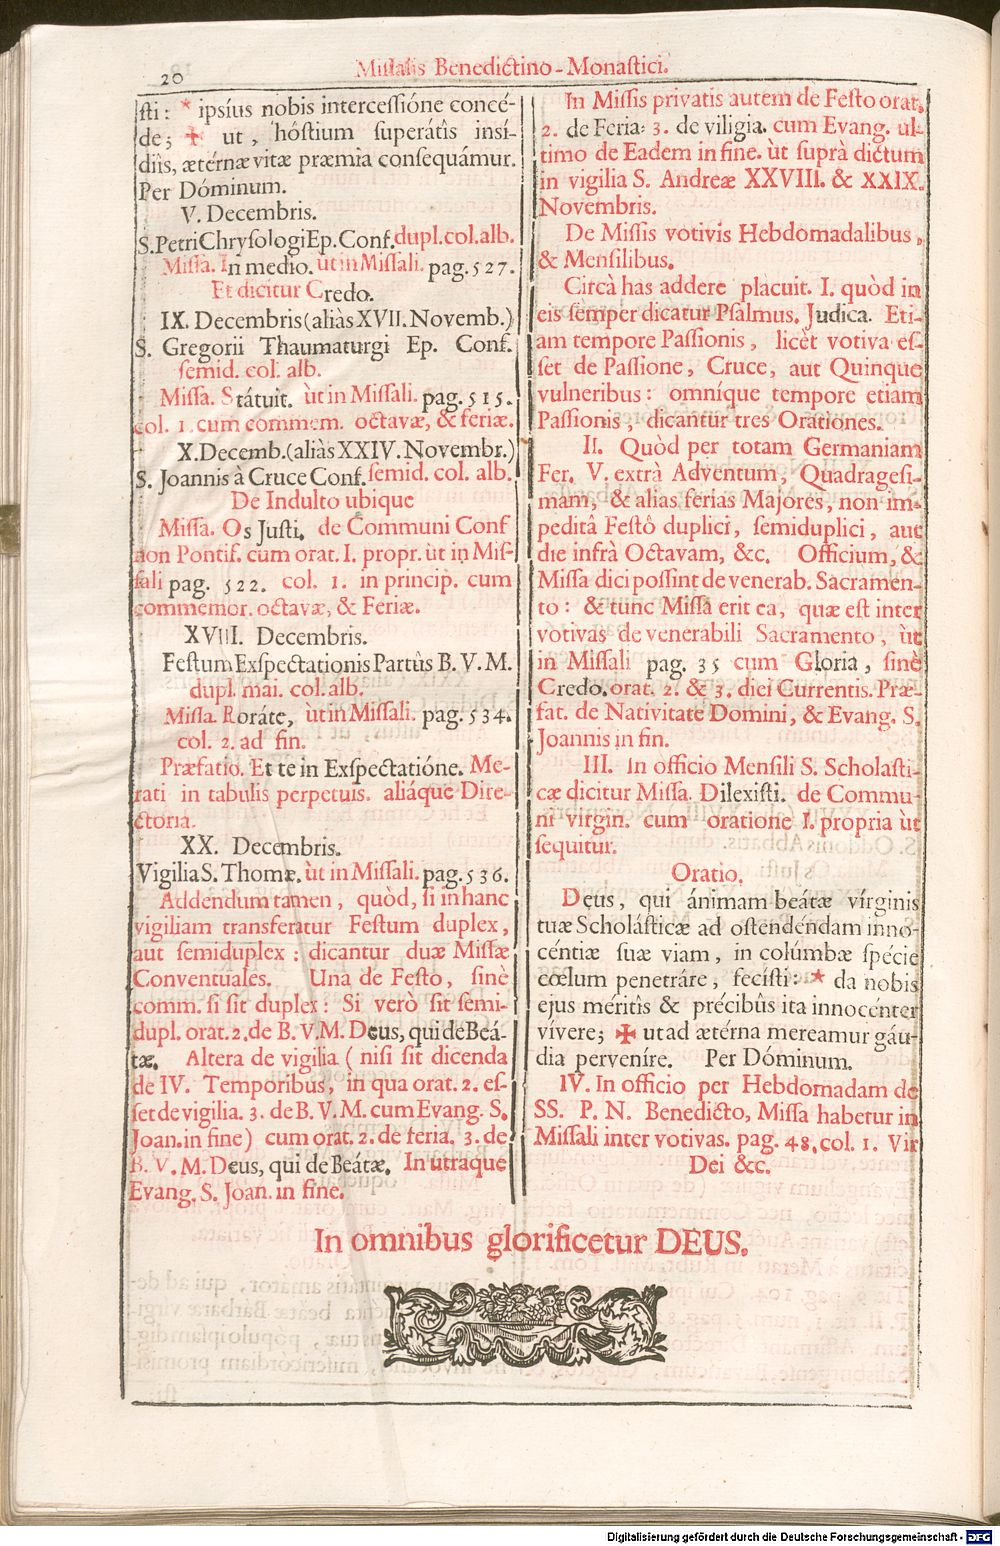 20
Missalis Benedictino-Monastici.
sti: * ipsíus nobis intercessióne concé-
de; ✠ ut, hóstium superátis insí-
diis, ætérnæ vitæ præmia consequámur.
Per Dóminum.
V. Decembris.
S. Petri Chrysologi Ep. Conf. dupl. col. alb.
Missa. In medio. ùt in Missali. pag. 527.
Et dicitur Credo.
IX. Decembris (aliàs XVII. Novemb.)
S. Gregorii Thaumaturgi Ep. Conf.
semid. col. alb.
Missa. Státuit. ùt in Missali. pag. 515.
col. 1. cum commem. octavæ, & feriæ.
X. Decemb. (aliàs XXIV. Novembr.)
S. Joannis à Cruce Conf. semid. col. alb.
De Indulto ubique
Missa. Os Justi. de Communi Conf
non Pontif. cum orat. I. propr. ùt in Mis-
sali pag. 522. col. 1. in princip. cum
commemor. octavæ, & Feriæ.
XVIII. Decembris.
Festum Exspectationis Partùs B. V. M.
dupl. mai. col. alb.
Missa. Roráte, ùt in Missali. pag. 534.
col. 2. ad fin.
Præfatio. Et te in Exspectatióne. Me-
rati in tabulis perpetuis. aliáque Dire-
ctoria.
XX. Decembris.
Vigilia S. Thomæ. ùt in Missali. pag. 536.
Addendum tamen, quòd, si in hanc
vigiliam transferatur Festum duplex,
aut semiduplex: dicantur duæ Missæ
Conventuales. Una de Festo, sinè
comm. si sit duplex: Si verò sit semi-
dupl. orat. 2. de B. V. M. Deus, qui de Beá-
tæ. Altera de vigilia (nisi sit dicenda
de IV. Temporibus, in qua orat. 2. es-
set de vigilia. 3. de B. V. M. cum Evang. S.
Joan. in fine) cum orat. 2. de feria. 3. de
B. V. M. Deus, qui de Beátæ. In utraque
Evang. S. Joan. in fine.
In Missis privatis autem de Festo orat.
2. de Feria: 3. de viligia. cum Evang. ul-
timo de Eadem in fine. ùt suprà dictum
in vigilia S. Andreæ XXVIII. & XXIX.
Novembris.
De Missis votivis Hebdomadalibus,
& Mensilibus.
Circà has addere placuit. I. quòd in
eis semper dicatur Psalmus. Judica. Eti-
am tempore Passionis, licèt votiva es-
set de Passione, Cruce, aut Quinque
vulneribus: omníque tempore etiam
Passionis, dicantur tres Orationes.
II. Quòd per totam Germaniam
Fer. V. extrà Adventum, Quadragesi-
mam, & alias ferias Majores, non im-
peditâ Festô duplici, semiduplici, aut
die infrà Octavam, &c. Officium, &
Missa dici possint de venerab. Sacramen-
to: & tunc Missa erit ea, quæ est inter
votivas de venerabili Sacramento, ùt
in Missali pag. 35 cum Gloria, sinè
Credo. orat. 2. & 3. diei Currentis. Præ-
fat. de Nativitate Domini, & Evang. S.
Joannis in fin.
III. In officio Mensili S. Scholasti-
cæ dicitur Missa. Dilexisti. de Commu-
ni virgin. cum oratione I. propria ùt
sequitur.
Oratio.
Deus, qui ánimam beátæ vírginis
tuæ Scholásticæ ad ostendéndam inno-
céntiæ suæ viam, in colúmbæ spécie
cœlum penetráre, fecísti: * da nobis
ejus méritis & précibus ita innocénter
vívere; ✠ ut ad ætérna mereamur gáu-
dia pervenire. Per Dóminum.
IV. In officio per Hebdomadam de
SS. P. N. Benedicto, Missa habetur in
Missali inter votivas. pag. 48. col. 1. Vir
Dei &c.
In omnibus glorificetur DEUS.
Digitalisierung gefördert durch die Deutsche Forschungsgemeinschaft - DFG